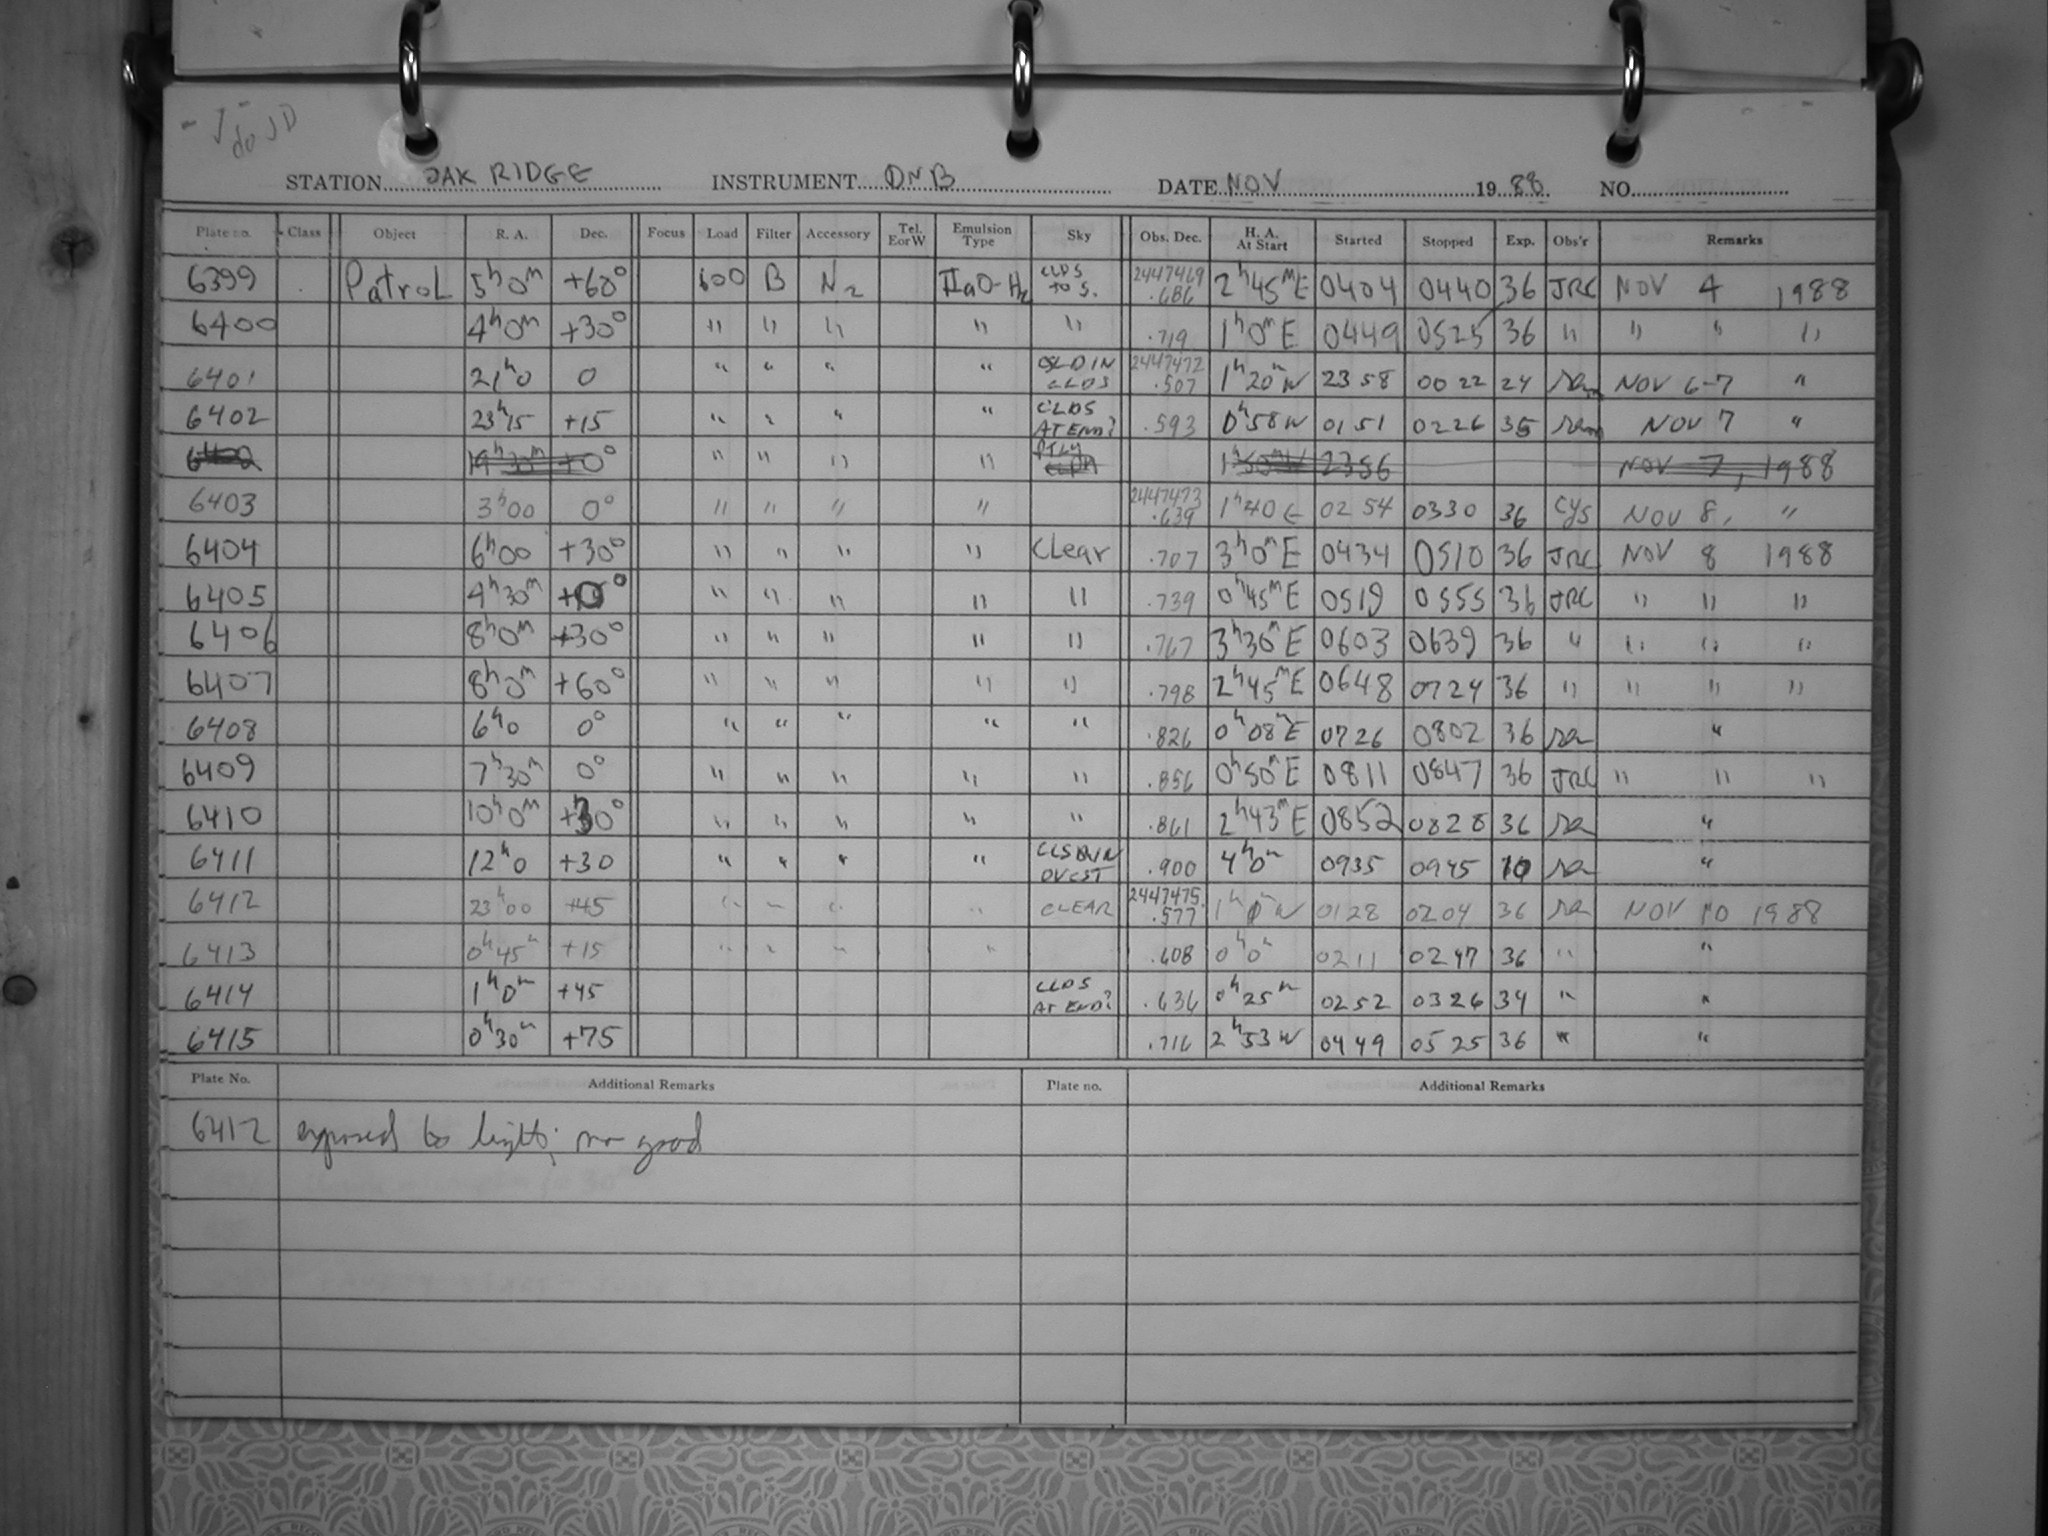 - J do JD
STATION OAK RIDGE INSTRUMENT DNB DATE NOV 1988 NO.
Plate no. Class Object R. A. Dec. Focus Load Filter Accessory Tel. E or W Emulsion Type Sky Obs. Dec. H. A. At Start Started Stopped Exp. Obs'r Remarks
6399 Patrol 5h0m +60° 600 B N2 IIaO-H2 CLDS TO S. 2447469 .686 2h45mE 0404 0440 36 JRC NOV 4 1988
6400 4h0m +30° " " " " " .719 1h0mE 0449 0525 36 " " " "
6401 21h0 0 " " " " CLSD IN CLDS 2447472 .507 1h20mW 2358 0022 24 NOV 6-7 "
6402 23h15 +15 " " " " CLDS AT END? .593 0h58W 0151 0226 35 NOV 7 "
6402 19h30m +0° " " " " PTLY 1h50mW 2356 NOV 7, 1988
6403 3h00 0° " " " " 2447473 .639 1h40E 0254 0330 36 CYS NOV 8, "
6404 6h00 +30° " " " " CLear .707 3h0mE 0434 0510 36 JRC NOV 8 1988
6405 4h30m +0° " " " " " .739 0h45mE 0519 0555 36 JRC " " "
6406 8h0m +30° " " " " " .767 3h30mE 0603 0639 36 " " " "
6407 8h0m +60° " " " " " .798 2h45mE 0648 0724 36 " " " "
6408 6h0 0° " " " " " .826 0h08mE 0726 0802 36 "
6409 7h30m 0° " " " " " .856 0h50mE 0811 0847 36 JRC " " "
6410 10h0m +30° " " " " " .861 2h43mE 0852 0828 36 "
6411 12h0 +30 " " " " CLSD IN OVCST .900 4h0m 0935 0945 10 "
6412 23h00 +45 " " " " CLEAR 2447475. .577 1h0mW 0128 0204 36 NOV 10 1988
6413 0h45m +15 " " " " .608 0h0m 0211 0247 36 " "
6414 1h0m +45 CLDS AT END? .636 0h25m 0252 0326 34 " "
6415 0h30m +75 .716 2h53W 0449 0525 36 " "
Plate No. Additional Remarks Plate no. Additional Remarks
6412 exposed to light; no good